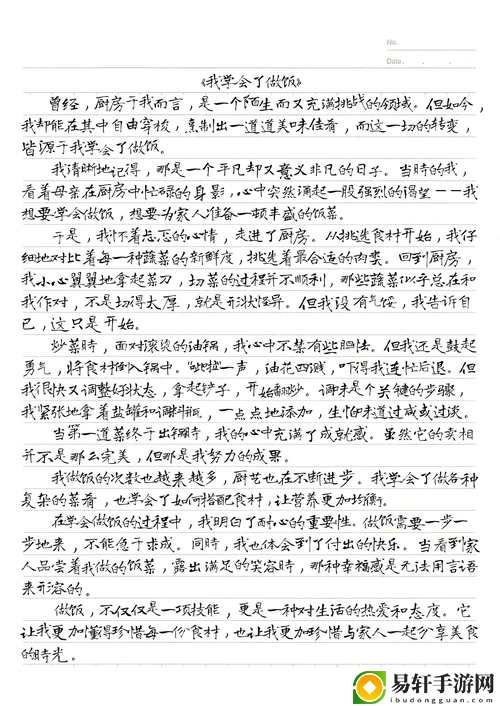 No.
Date . .
《我学会了做饭》
曾经，厨房于我而言，是一个陌生而又充满挑战的领域。但如今，
我却能在其中自由穿梭，烹制出一道道美味佳肴，而这一切的转变，
皆源于我学会了做饭。
我清晰地记得，那是一个平凡却又意义非凡的日子。当时的我，
看着母亲在厨房中忙碌的身影，心中突然涌起一股强烈的渴望——我
想要学会做饭，想要为家人准备一顿丰盛的饭菜。
于是，我怀着忐忑的心情，走进了厨房。从挑选食材开始，我仔
细地对比着每一种蔬菜的新鲜度，挑选着最合适的肉类。回到厨房，
我小心翼翼地拿起菜刀，切菜的过程并不顺利，那些蔬菜似乎总在和
我作对，不是切得太厚，就是形状怪异。但我没有气馁，我告诉自
己，这只是开始。
炒菜时，面对滚烫的油锅，我心中不禁有些胆怯。但我还是鼓起
勇气，将食材倒入锅中。“呲啦”一声，油花四溅，吓得我连忙后退。但
我很快又调整好状态，拿起铲子，开始翻炒。调味是个关键的步骤，
我紧张地拿着盐罐和调料瓶，一点点地添加，生怕味道过咸或过淡。
当第一道菜终于出锅时，我的心中充满了成就感。虽然它的卖相
并不是那么完美，但那是我努力的成果。
我做饭的次数也越来越多，厨艺也在不断进步。我学会了做各种
复杂的菜肴，也学会了如何搭配食材，让营养更加均衡。
在学会做饭的过程中，我明白了耐心的重要性。做饭需要一步一
步地来，不能急于求成。同时，我也体会到了付出的快乐。当看到家
人品尝着我做的饭菜，露出满足的笑容时，那种幸福感是无法用言语
来形容的。
做饭，不仅仅是一项技能，更是一种对生活的热爱和态度。它
让我更加懂得珍惜每一份食材，也让我更加珍惜与家人一起分享美食
的时光。
易轩手游网
ibudongguan.com